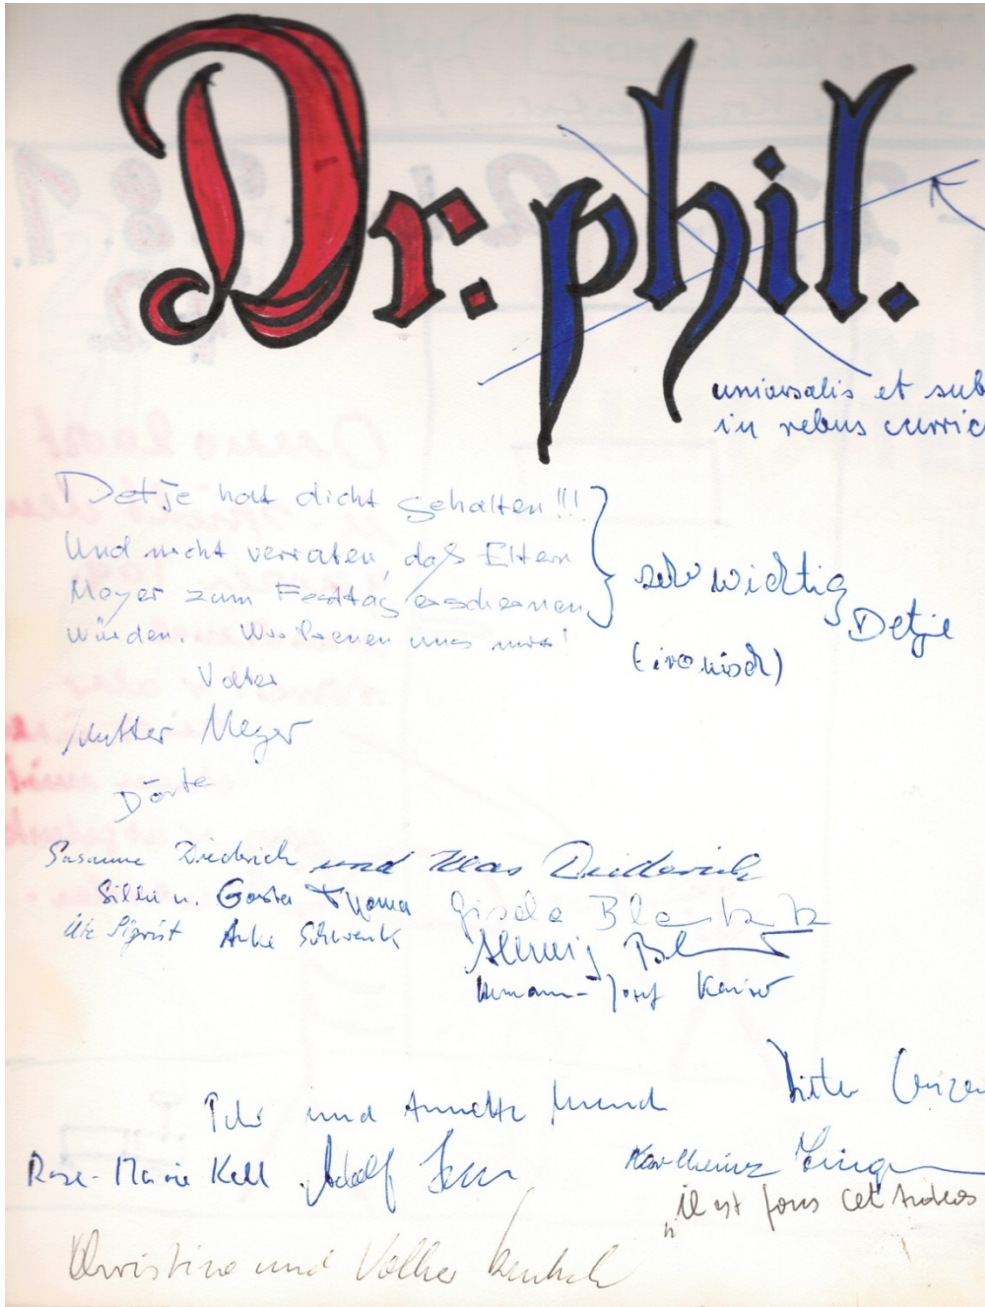 Dr. phil.
universalis et sub
in rebus curric
Detje hat dicht gehalten!!!
Und nicht verraten, daß Eltern
Meyer zum Festtag erscheinen
würden. Wir freuen uns
sehr wichtig
Detje
(ironisch)
Vater
Mutter Meyer
Dörte
Susanne Diederich und Klas Diederich
Silke u. Gösta Thoma Gisela Blankertz
Ute Sigrist Anke Schwenk
Herwig Bl
Hermann-Josef Kaiser
Dieter Lenzen
und Annette
Rose-Marie Kell Adolf
Karlheinz
„il est fous cet
Christine und Volker